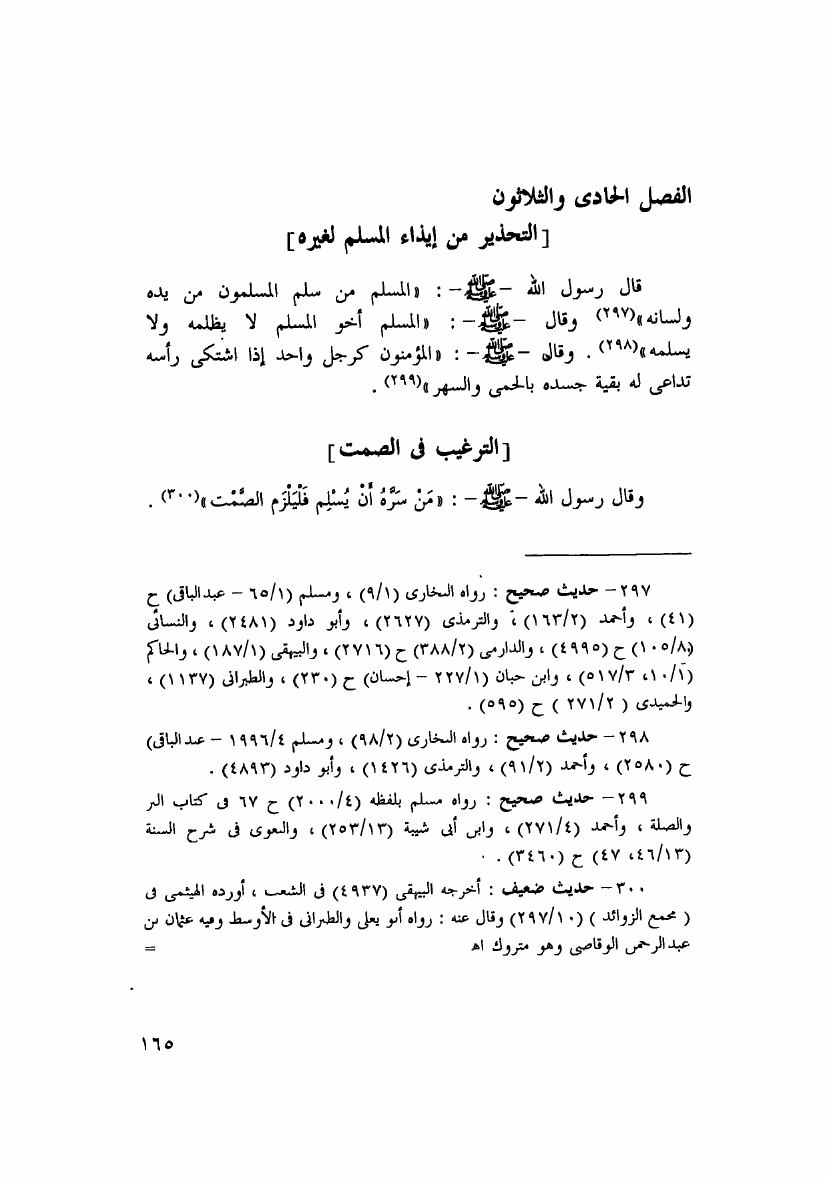 الفصل الحادى والثلاثون
[ التحذير من إيذاء المسلم لغيره ]
قال رسول الله – ﷺ – : «المسلم من سلم المسلمون من يده
ولسانه»(٢٩٧) وقال – ﷺ – : «المسلم أخو المسلم لا يظلمه ولا
يسلمه»(٢٩٨) . وقال – ﷺ – : «المؤمنون كرجل واحد إذا اشتكى رأسه
تداعى له بقية جسده بالحمى والسهر»(٢٩٩) .
[ الترغيب فى الصمت ]
وقال رسول الله – ﷺ – : «مَنْ سَرَّهُ أَنْ يُسْلِم فَلْيَلْزَم الصَّمْت»(٣٠٠) .
٢٩٧ – حديث صحيح : رواه البخارى (٩/١) ، ومسلم (٦٥/١ – عبدالباقى) ح
(٤١) ، وأحمد (١٦٣/٢) ، والترمذى (٢٦٢٧) ، وأبو داود (٢٤٨١) ، والنسائى
(١٠٥/٨) ح (٤٩٩٥) ، والدارمى (٣٨٨/٢) ح (٢٧١٦) ، والبيهقى (١٨٧/١) ، والحاكم
(١٠/١، ٥١٧/٣) ، وابن حبان (٢٢٧/١ – إحسان) ح (٢٣٠) ، والطبرانى (١١٣٧) ،
والحميدى ( ٢٧١/٢ ) ح (٥٩٥) .
٢٩٨ – حديث صحيح : رواه البخارى (٩٨/٢) ، ومسلم ١٩٩٦/٤ – عبدالباقى)
ح (٢٥٨٠) ، وأحمد (٩١/٢) ، والترمذى (١٤٢٦) ، وأبو داود (٤٨٩٣) .
٢٩٩ – حديث صحيح : رواه مسلم بلفظه (٢٠٠٠/٤) ح ٦٧ فى كتاب البر
والصلة ، وأحمد (٢٧١/٤) ، وابن أبى شيبة (٢٥٣/١٣) ، والبغوى فى شرح السنة
(٤٦/١٣، ٤٧) ح (٣٤٦٠) .
٣٠٠ – حديث ضعيف : أخرجه البيهقى (٤٩٣٧) فى الشعب ، أورده الهيثمى فى
( مجمع الزوائد ) (٢٩٧/١٠) وقال عنه : رواه أبو يعلى والطبرانى فى الأوسط وفيه عثمان بن
عبدالرحمن الوقاصى وهو متروك اهـ =
١٦٥